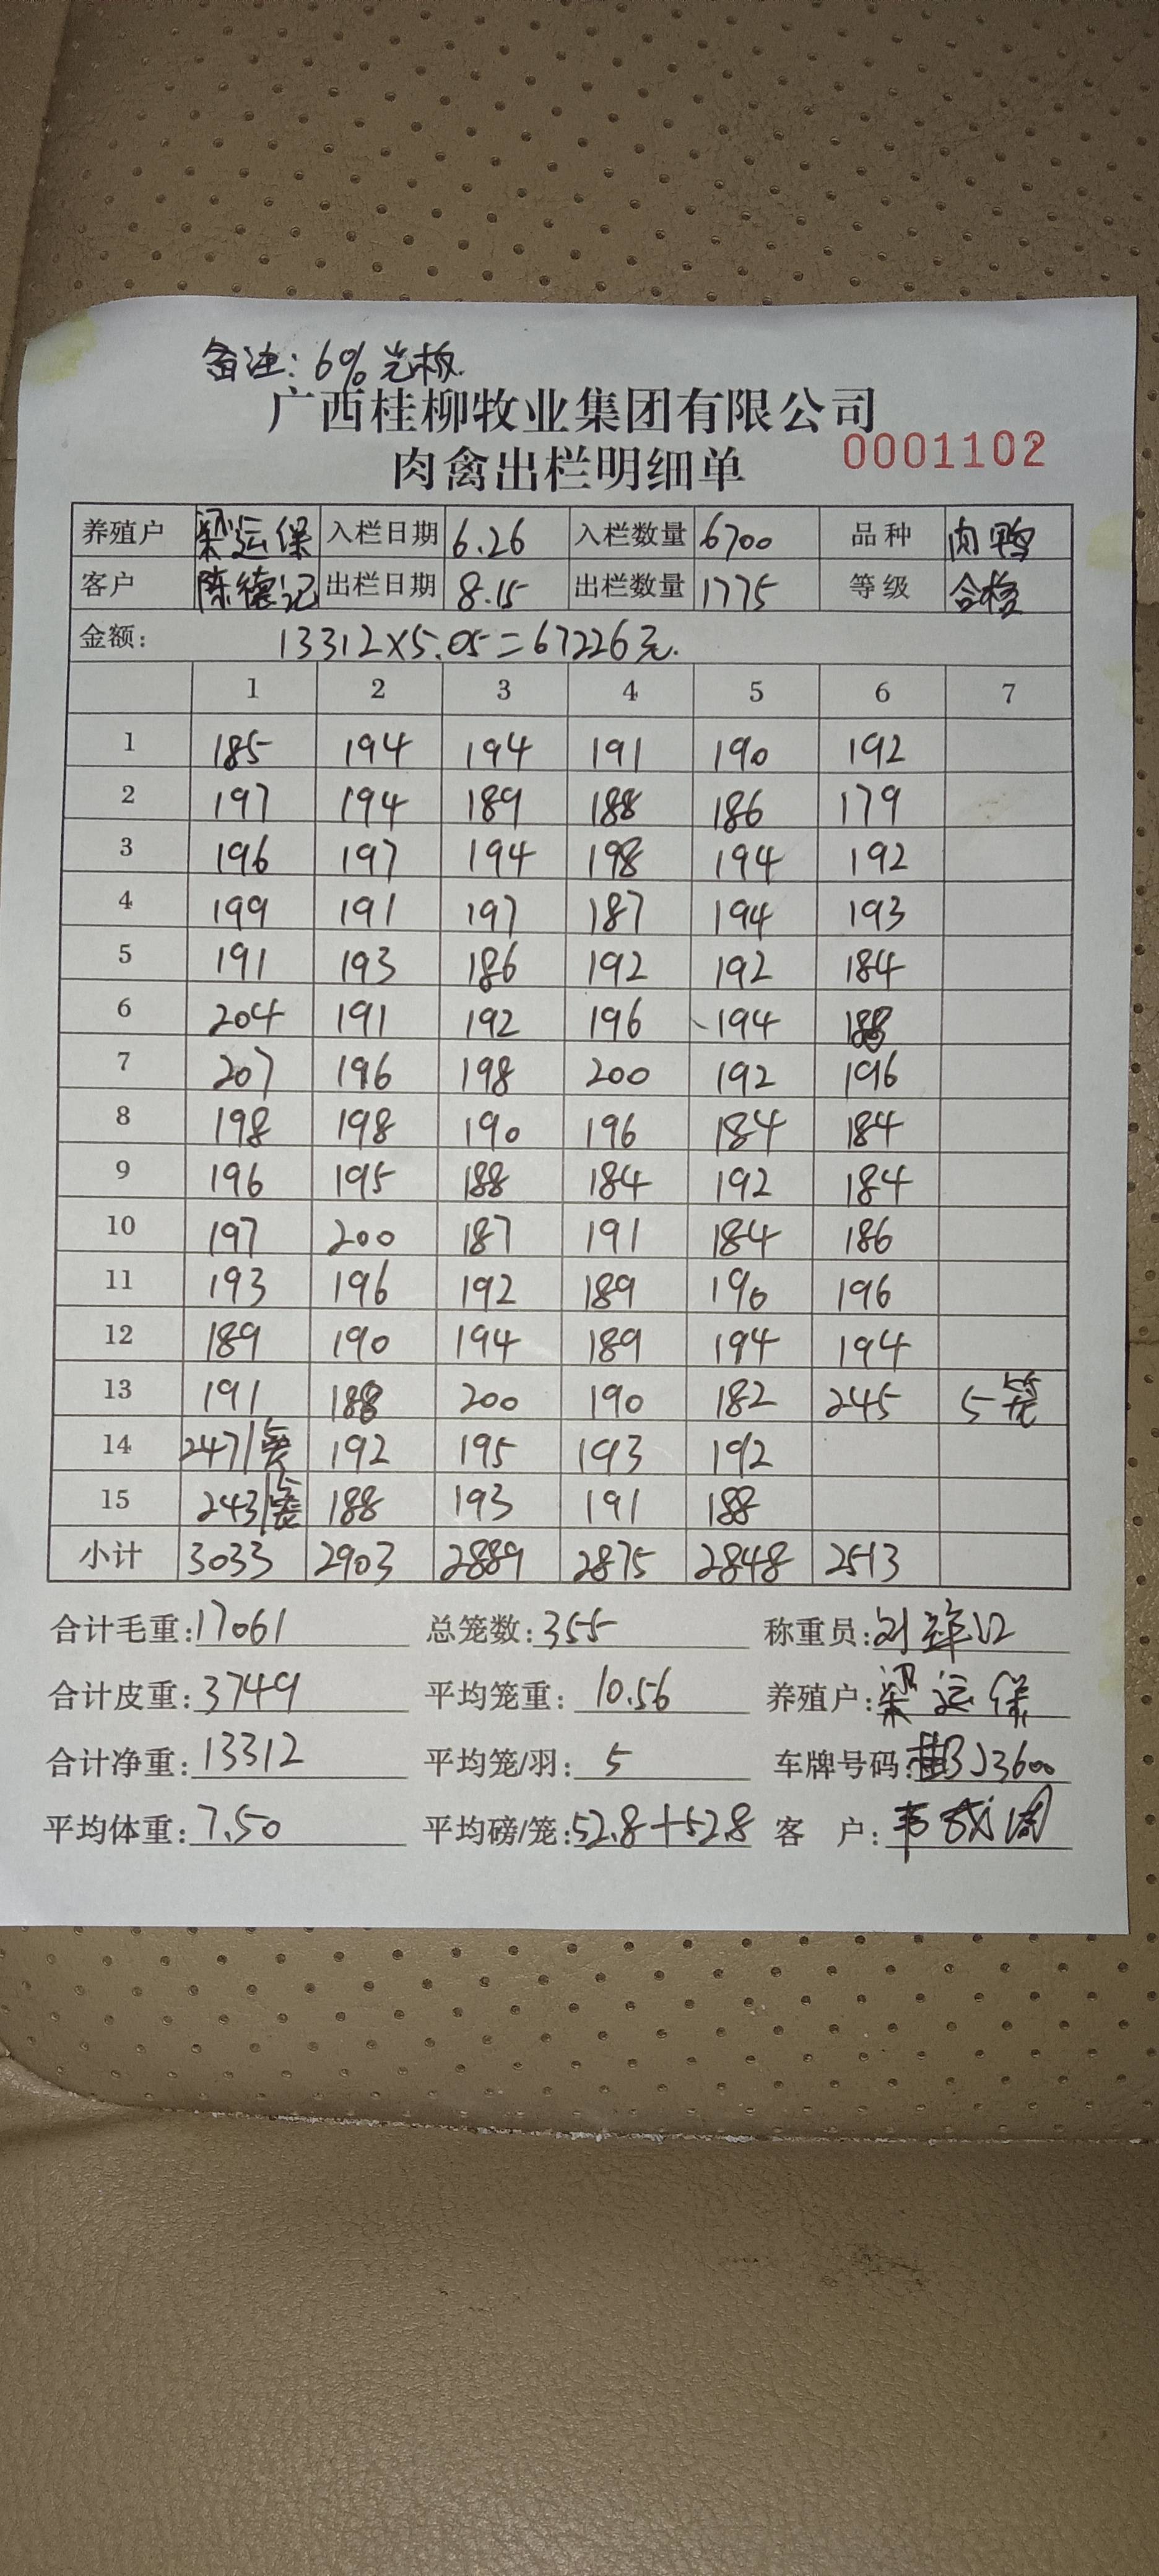 备注: 6% 光板.
广西桂柳牧业集团有限公司
肉禽出栏明细单 0001102
养殖户 梁运保 入栏日期 6.26 入栏数量 6700 品种 肉鸭
客户 陈德记 出栏日期 8.15 出栏数量 1775 等级 合格
金额: 13312×5.05=67226元.
1 2 3 4 5 6 7
1 185 194 194 191 190 192
2 197 194 189 188 186 179
3 196 197 194 198 194 192
4 199 191 197 187 194 193
5 191 193 186 192 192 184
6 204 191 192 196 194 188
7 207 196 198 200 192 196
8 198 198 190 196 184 184
9 196 195 188 184 192 184
10 197 200 187 191 184 186
11 193 196 192 189 190 196
12 189 190 194 189 194 194
13 191 188 200 190 182 245 5笼
14 247 192 195 193 192
15 243 188 193 191 188
小计 3033 2903 2889 2875 2848 2513
合计毛重: 17061 总笼数: 355 称重员: 刘
合计皮重: 3749 平均笼重: 10.56 养殖户: 梁运保
合计净重: 13312 平均笼/羽: 5 车牌号码: J3600
平均体重: 7.50 平均磅/笼: 52.8+52.8 客 户: 韦